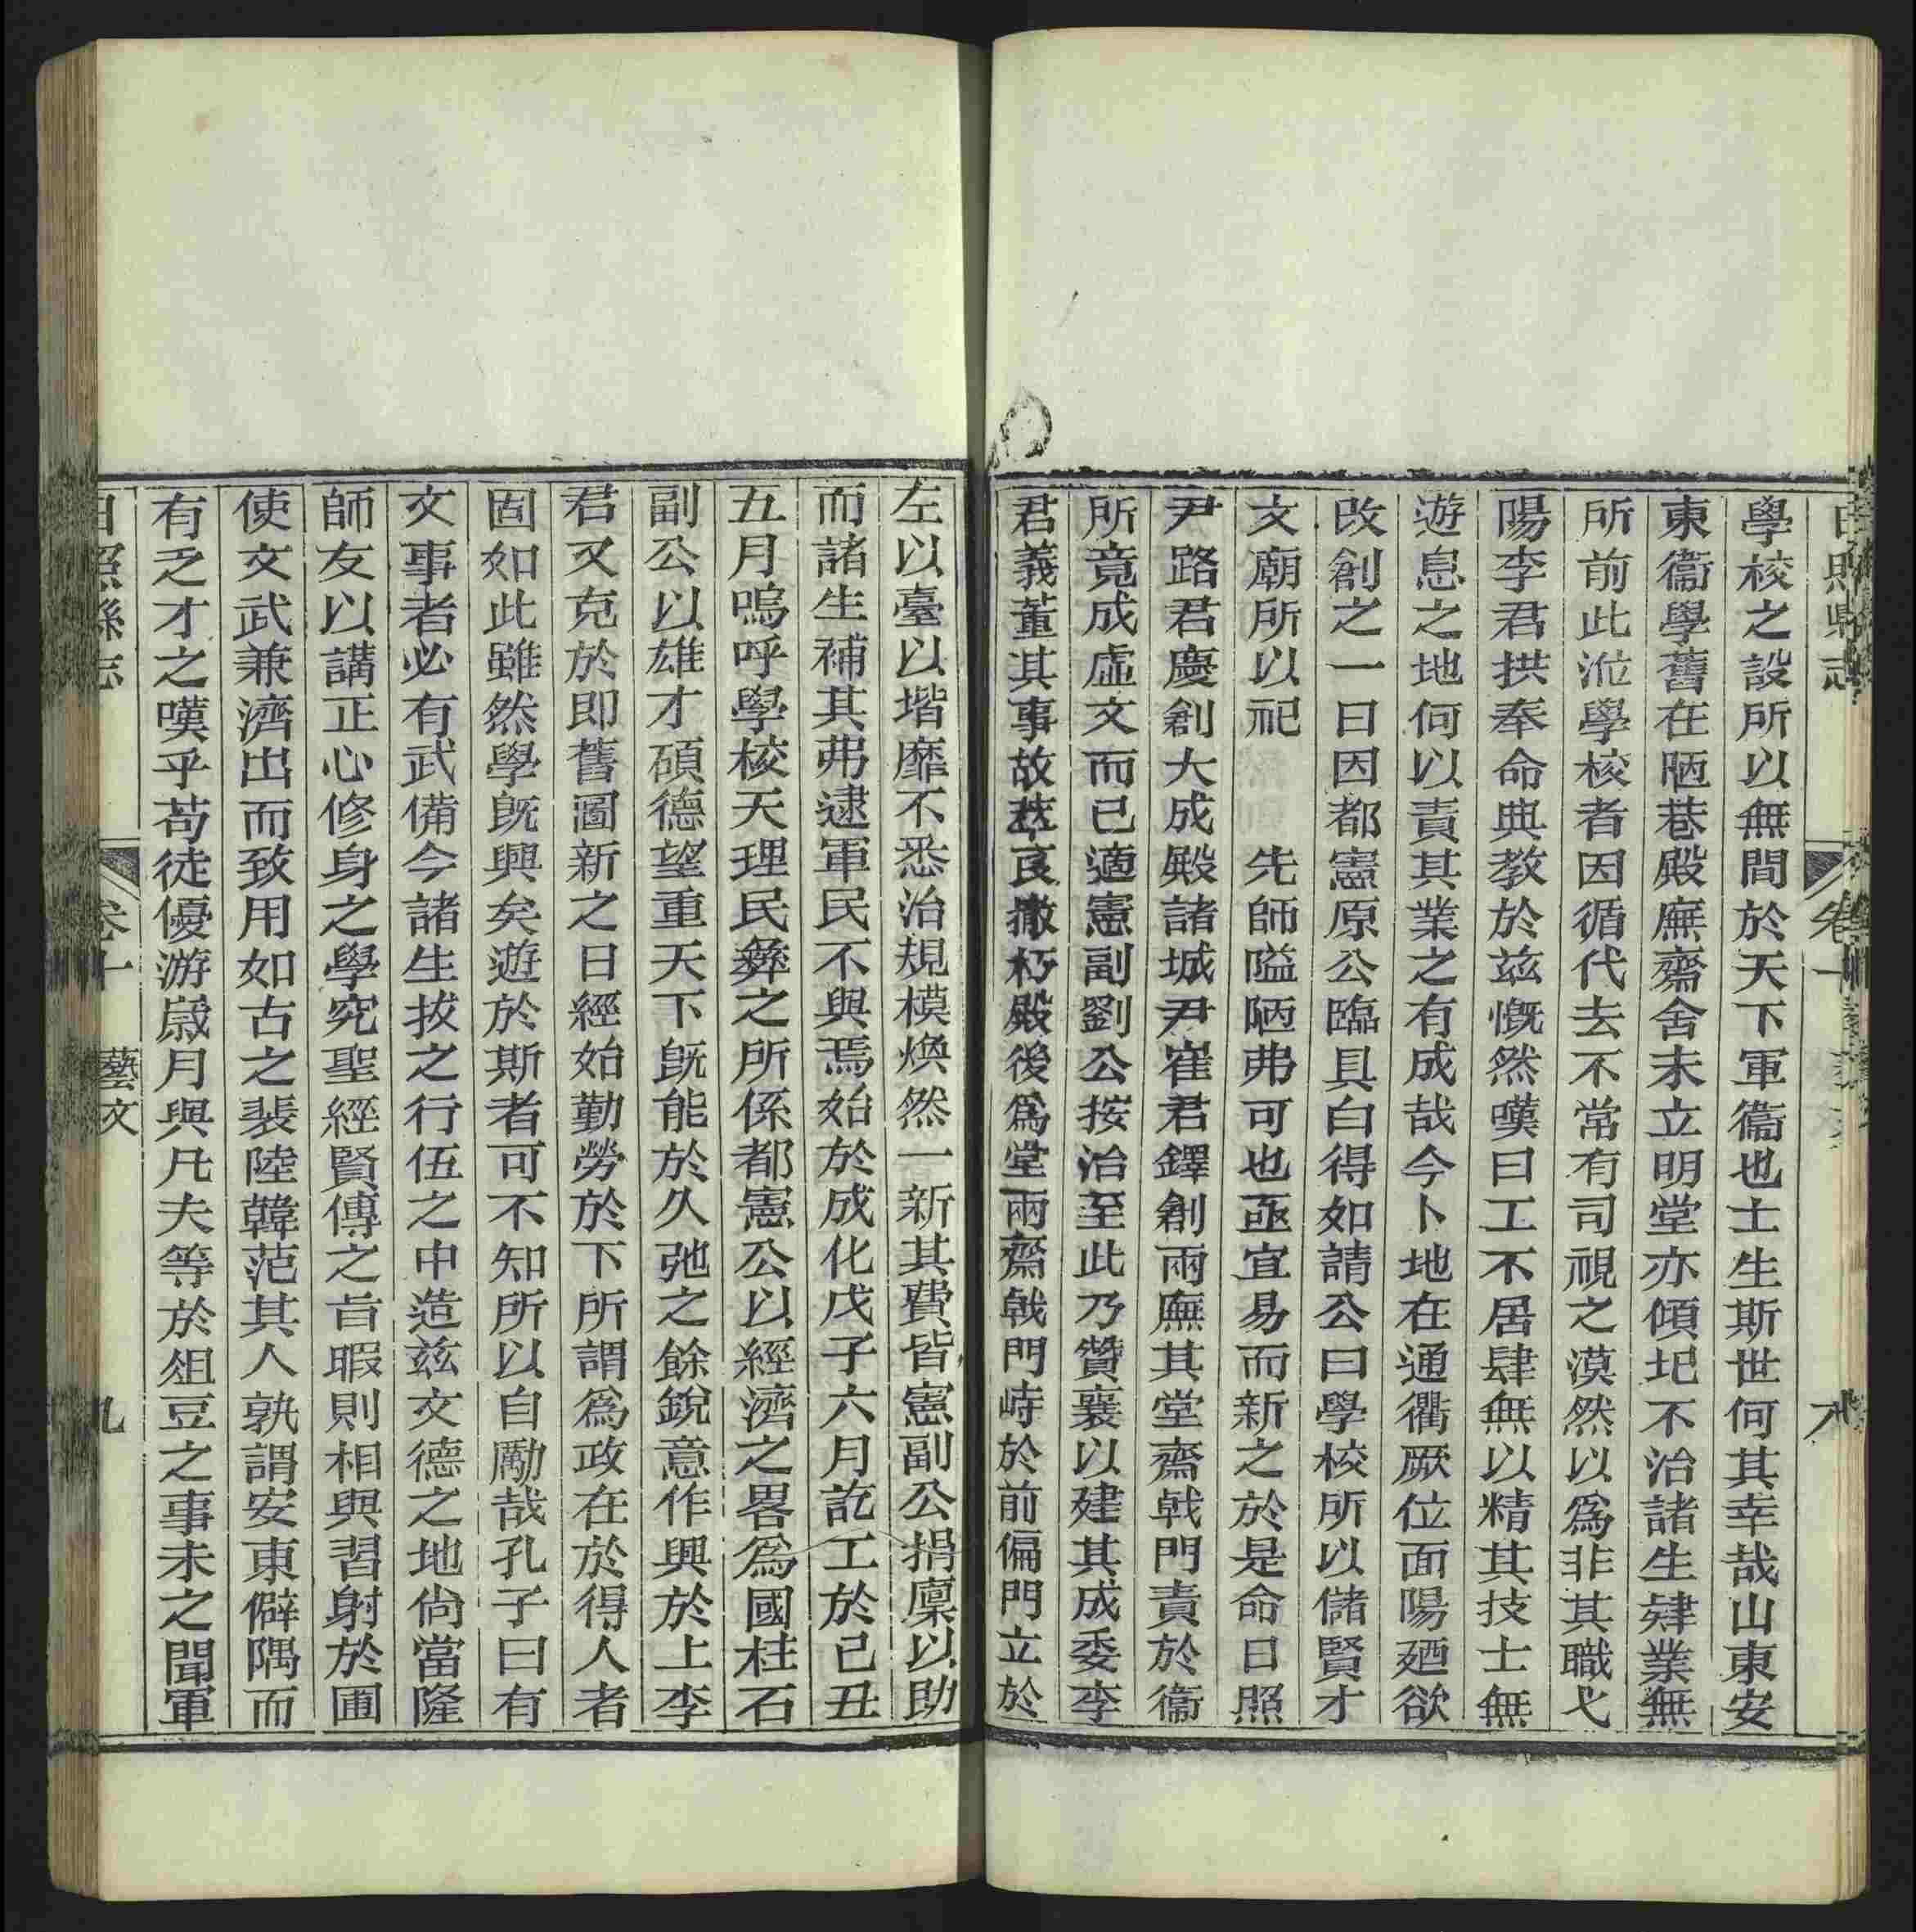 日照縣志 卷十
學校之設所以無間於天下軍衞也士生斯世何其幸哉山東安
東衞學舊在陋巷殿廡齋舍未立明堂亦傾圮不治諸生肄業無
所前此涖學校者因循代去不常有司視之漠然以爲非其職弋
陽李君拱奉命典教於兹慨然嘆曰工不居肆無以精其技士無
遊息之地何以責其業之有成哉今卜地在通衢厥位面陽廼欲
改創之一日因都憲原公臨具白得如請公曰學校所以儲賢才
文廟所以祀 先師隘陋弗可也亟宜易而新之於是命日照
尹路君慶創大成殿諸城尹崔君鐸創兩廡其堂齋戟門責於衞
所竟成虛文而已適憲副劉公按治至此乃贊襄以建其成委李
君義董其事故材良撤朽殿後爲堂兩齋戟門峙於前偏門立於
左以臺以堦靡不悉治規模煥然一新其費皆憲副公捐廩以助
而諸生補其弗逮軍民不與焉始於成化戊子六月訖工於己丑
五月嗚呼學校天理民彝之所係都憲公以經濟之畧爲國柱石
副公以雄才碩德望重天下既能於久弛之餘銳意作興於上李
君又克於即舊圖新之日經始勤勞於下所謂爲政在於得人者
固如此雖然學既興矣遊於斯者可不知所以自勵哉孔子曰有
文事者必有武備今諸生拔之行伍之中造兹文德之地尙當隆
師友以講正心修身之學究聖經賢傳之旨暇則相與習射於圃
使文武兼濟出而致用如古之裴陸韓范其人孰謂安東僻隅而
有乏才之嘆乎苟徒優游歲月與凡夫等於俎豆之事未之聞軍
日照縣志 卷十 藝文 九